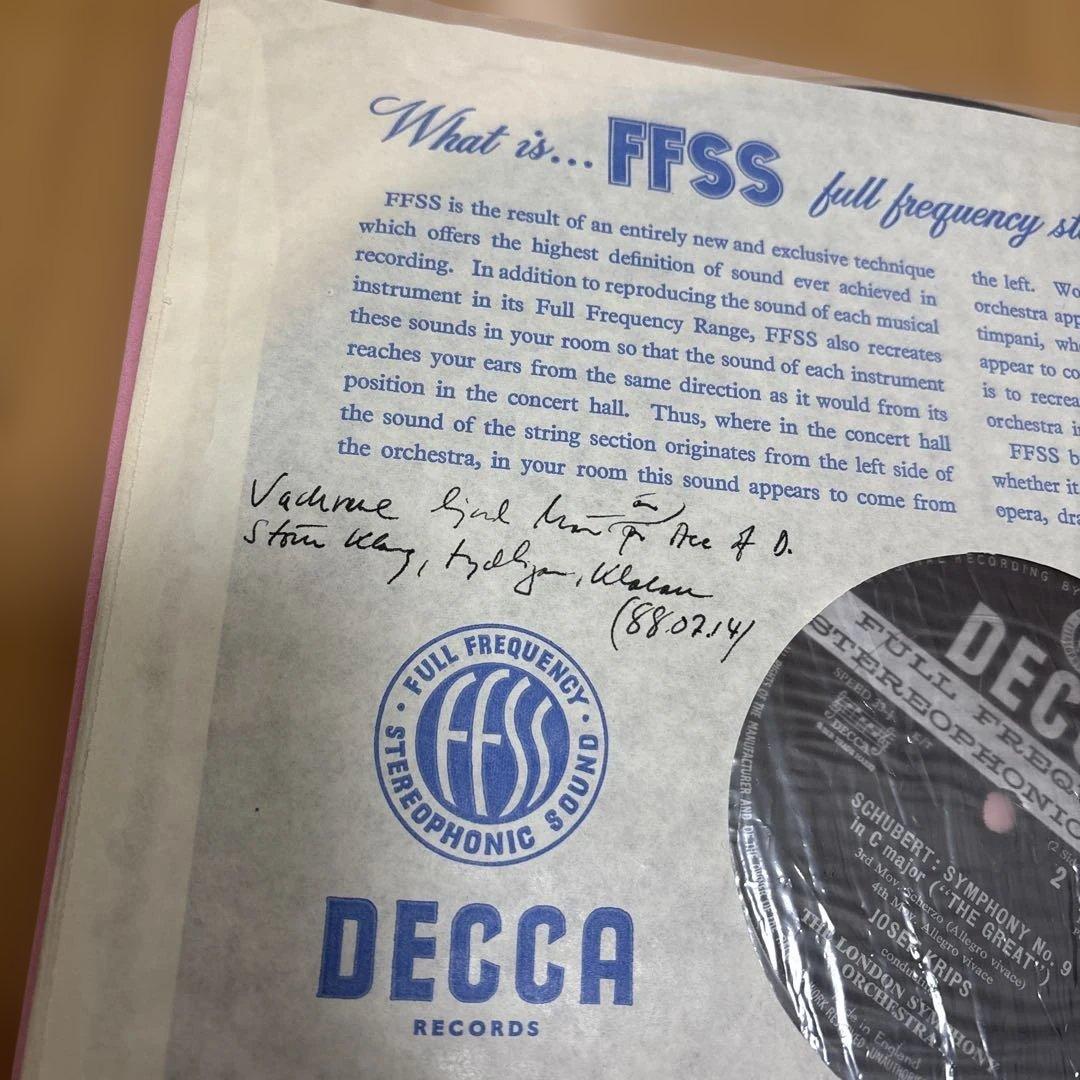 What is... FFSS full frequency
FFSS is the result of an entirely new and exclusive technique
which offers the highest definition of sound ever achieved in
recording. In addition to reproducing the sound of each musical
instrument in its Full Frequency Range, FFSS also recreates
these sounds in your room so that the sound of each instrument
reaches your ears from the same direction as it would from its
position in the concert hall. Thus, where in the concert hall
the sound of the string section originates from the left side of
the orchestra, in your room this sound appears to come from
the left.
orchestra
timpani,
appear to
is to
orchestra
FFSS
whether it
opera,
Vackrare ljud än Ace of D.
Större klang, tydligare, klarare
(88.07.14)
FULL FREQUENCY
FFSS
STEREOPHONIC SOUND
DECCA
RECORDS
RECORDING BY
DECC
FULL FREQ
STEREOPHONIC
SPEED
2
SCHUBERT: SYMPHONY No. 9
in C major ("THE GREAT")
3rd Mov. Scherzo (Allegro vivace)
4th Mov. Allegro vivace
JOSEF KRIPS
conducting
THE LONDON SYMPHONY
ORCHESTRA
Made in England